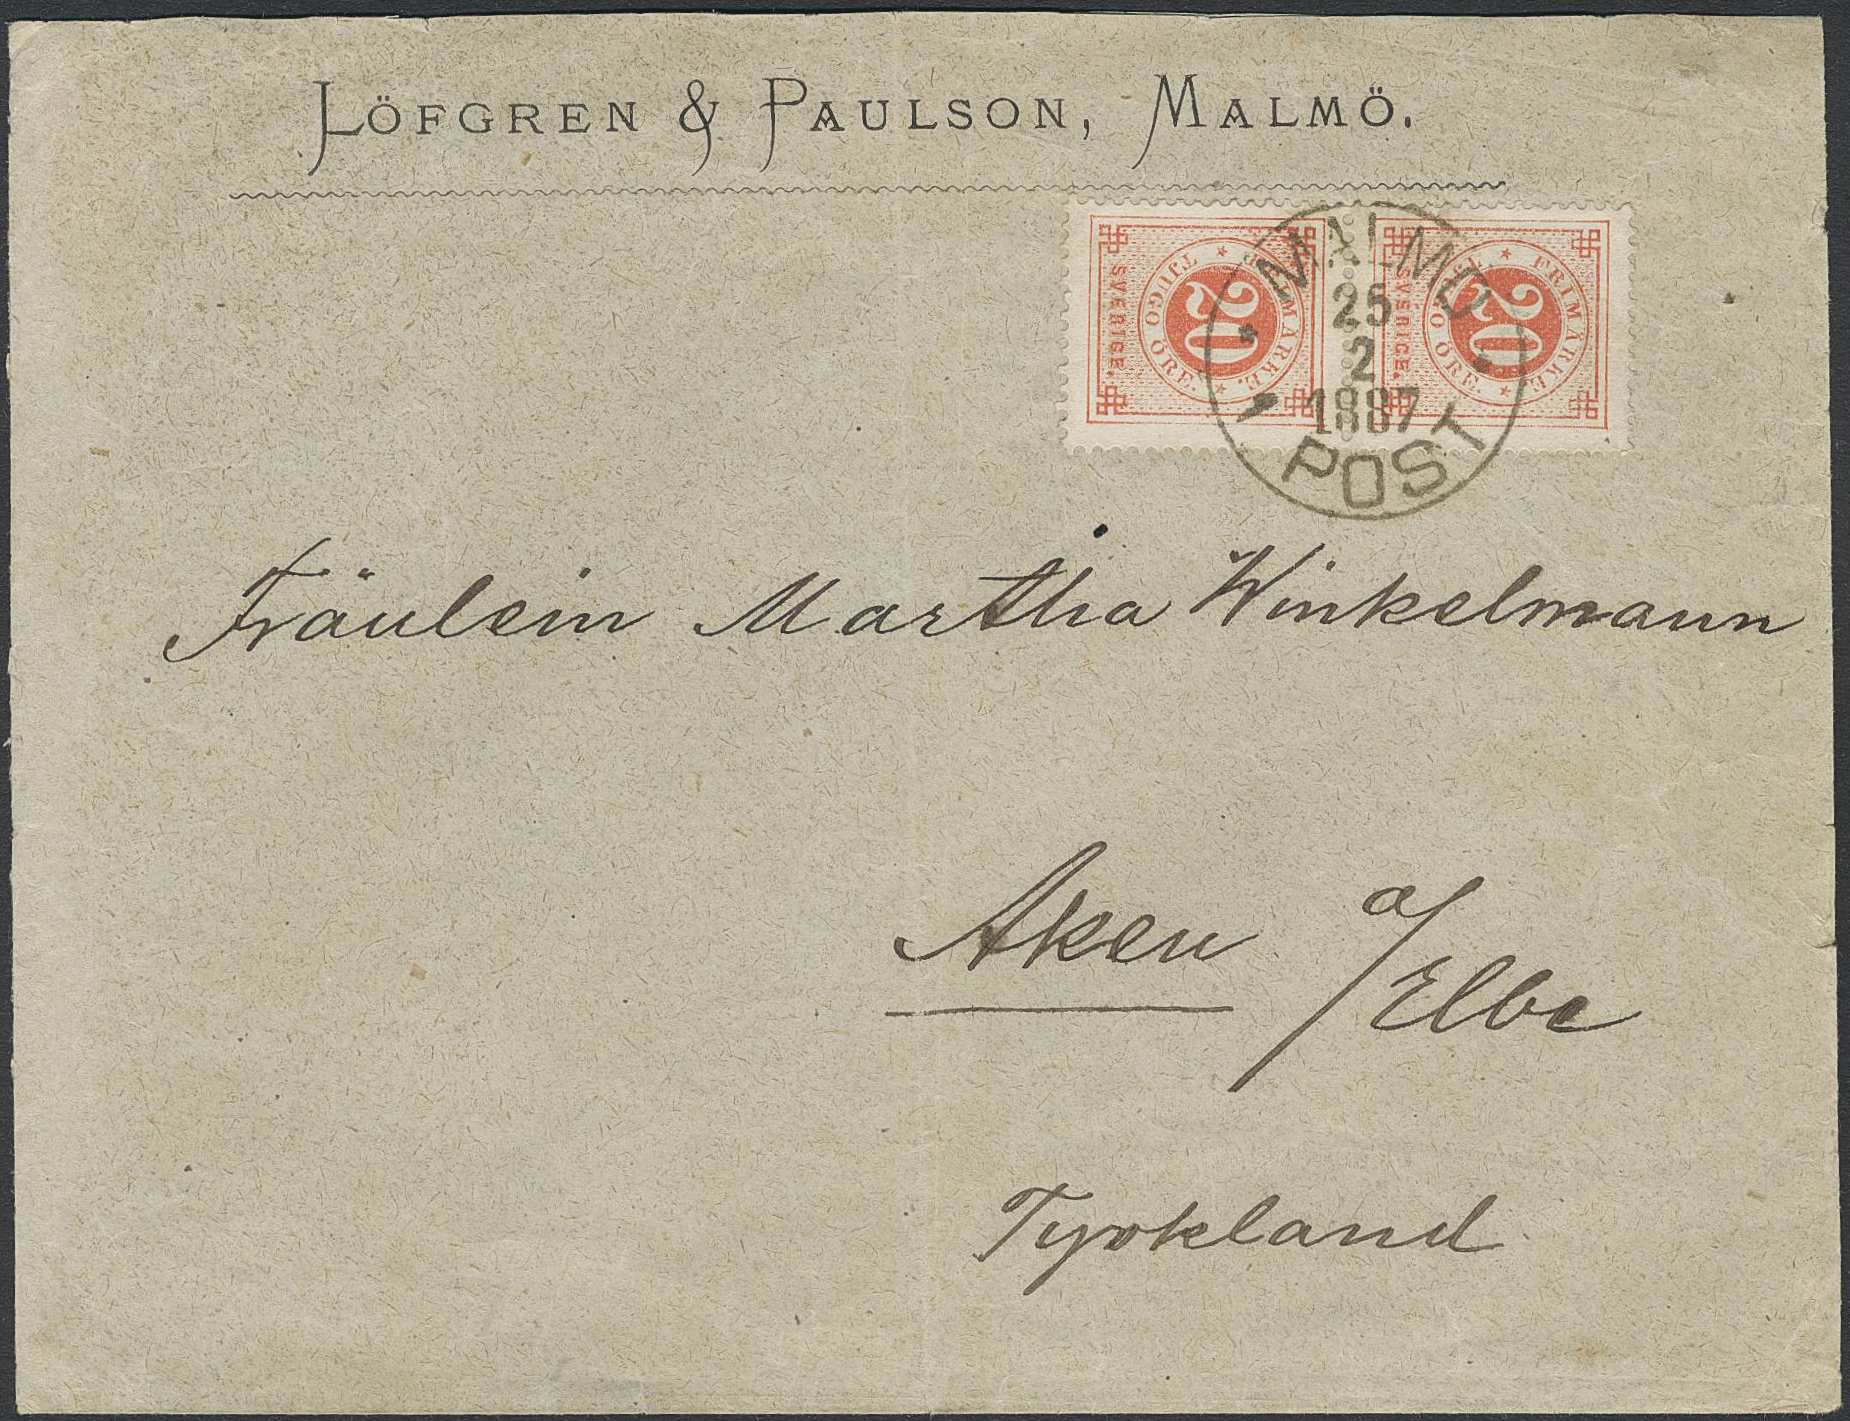 LÖFGREN & PAULSON, MALMÖ.
SVERIGE. FRIMÄRKE. TJUGO ÖRE. 20
SVERIGE. FRIMÄRKE. TJUGO ÖRE. 20
MALMÖ
25
2
1887
POST
Fräulein Martha Winkelmann
Aken a/Elbe
Tyskland